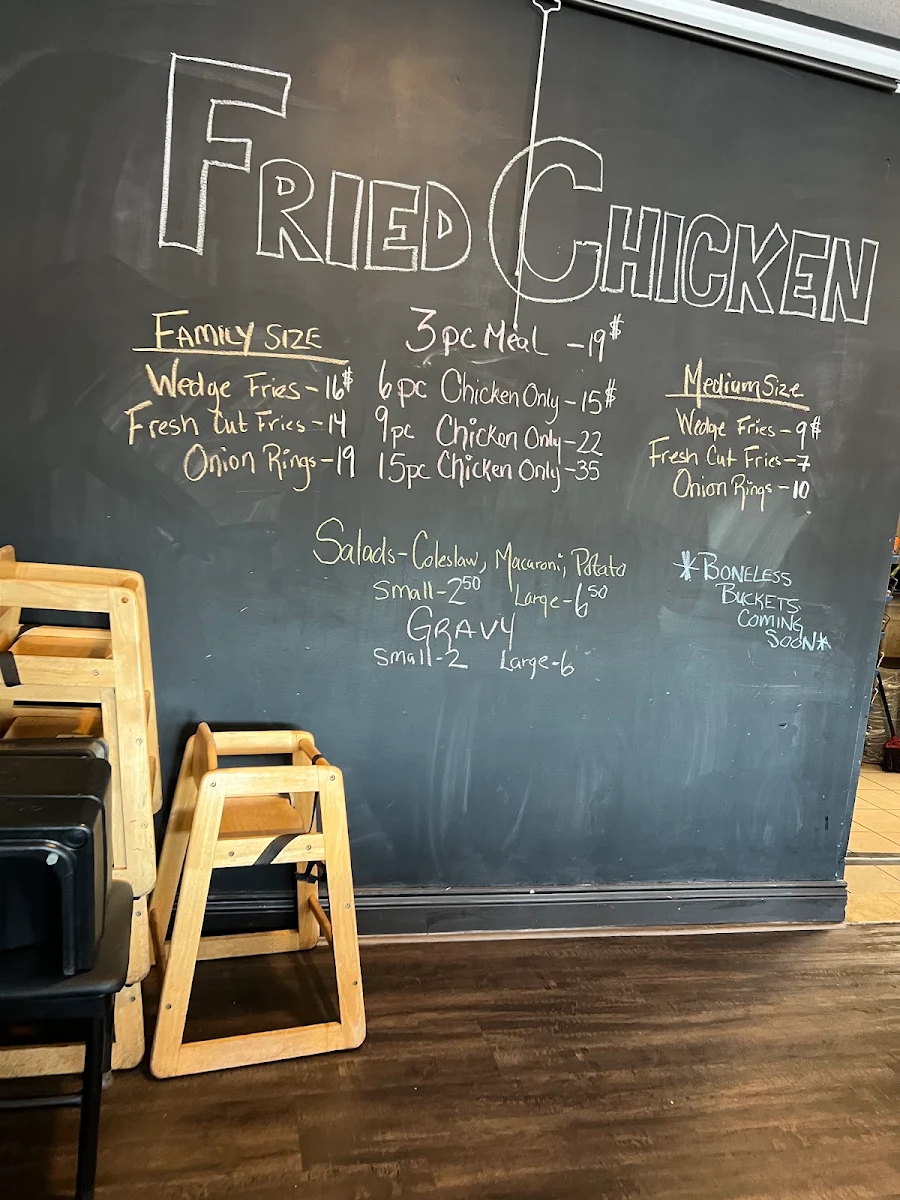 FRIED CHICKEN
FAMILY SIZE
Wedge Fries - 16$
Fresh Cut Fries - 14
Onion Rings - 19
3pc Meal - 19$
6pc Chicken Only - 15$
9pc Chicken Only - 22
15pc Chicken Only - 35
Medium Size
Wedge Fries - 9$
Fresh Cut Fries - 7
Onion Rings - 10
Salads - Coleslaw, Macaroni, Potato
Small - 2 50 Large - 6 50
GRAVY
Small - 2 Large - 6
*BONELESS
BUCKETS
COMING
SOON*